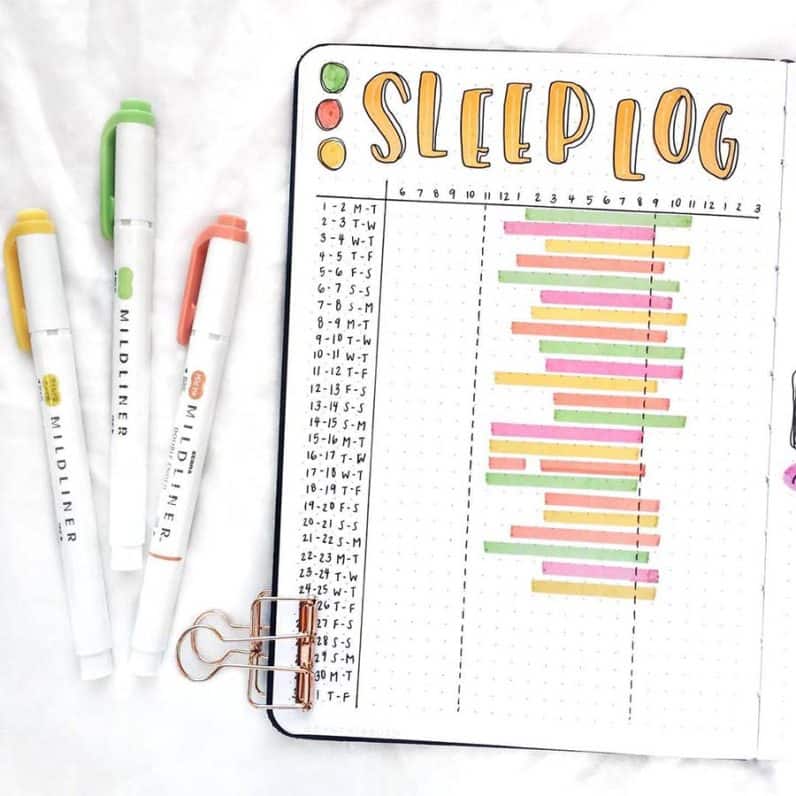 SLEEP LOG
6 7 8 9 10 11 12 1 2 3 4 5 6 7 8 9 10 11 12 1 2 3
1-2 M-T
2-3 T-W
3-4 W-T
4-5 T-F
5-6 F-S
6-7 S-S
7-8 S-M
8-9 M-T
9-10 T-W
10-11 W-T
11-12 T-F
12-13 F-S
13-14 S-S
14-15 S-M
15-16 M-T
16-17 T-W
17-18 W-T
18-19 T-F
19-20 F-S
20-21 S-S
21-22 S-M
22-23 M-T
23-24 T-W
24-25 W-T
26 T-F
27 F-S
28 S-S
29 S-M
30 M-T
1 T-F
MILDLINER
MILDLINER
ZEBRA
MILDLINER
DOUBLE ENDED